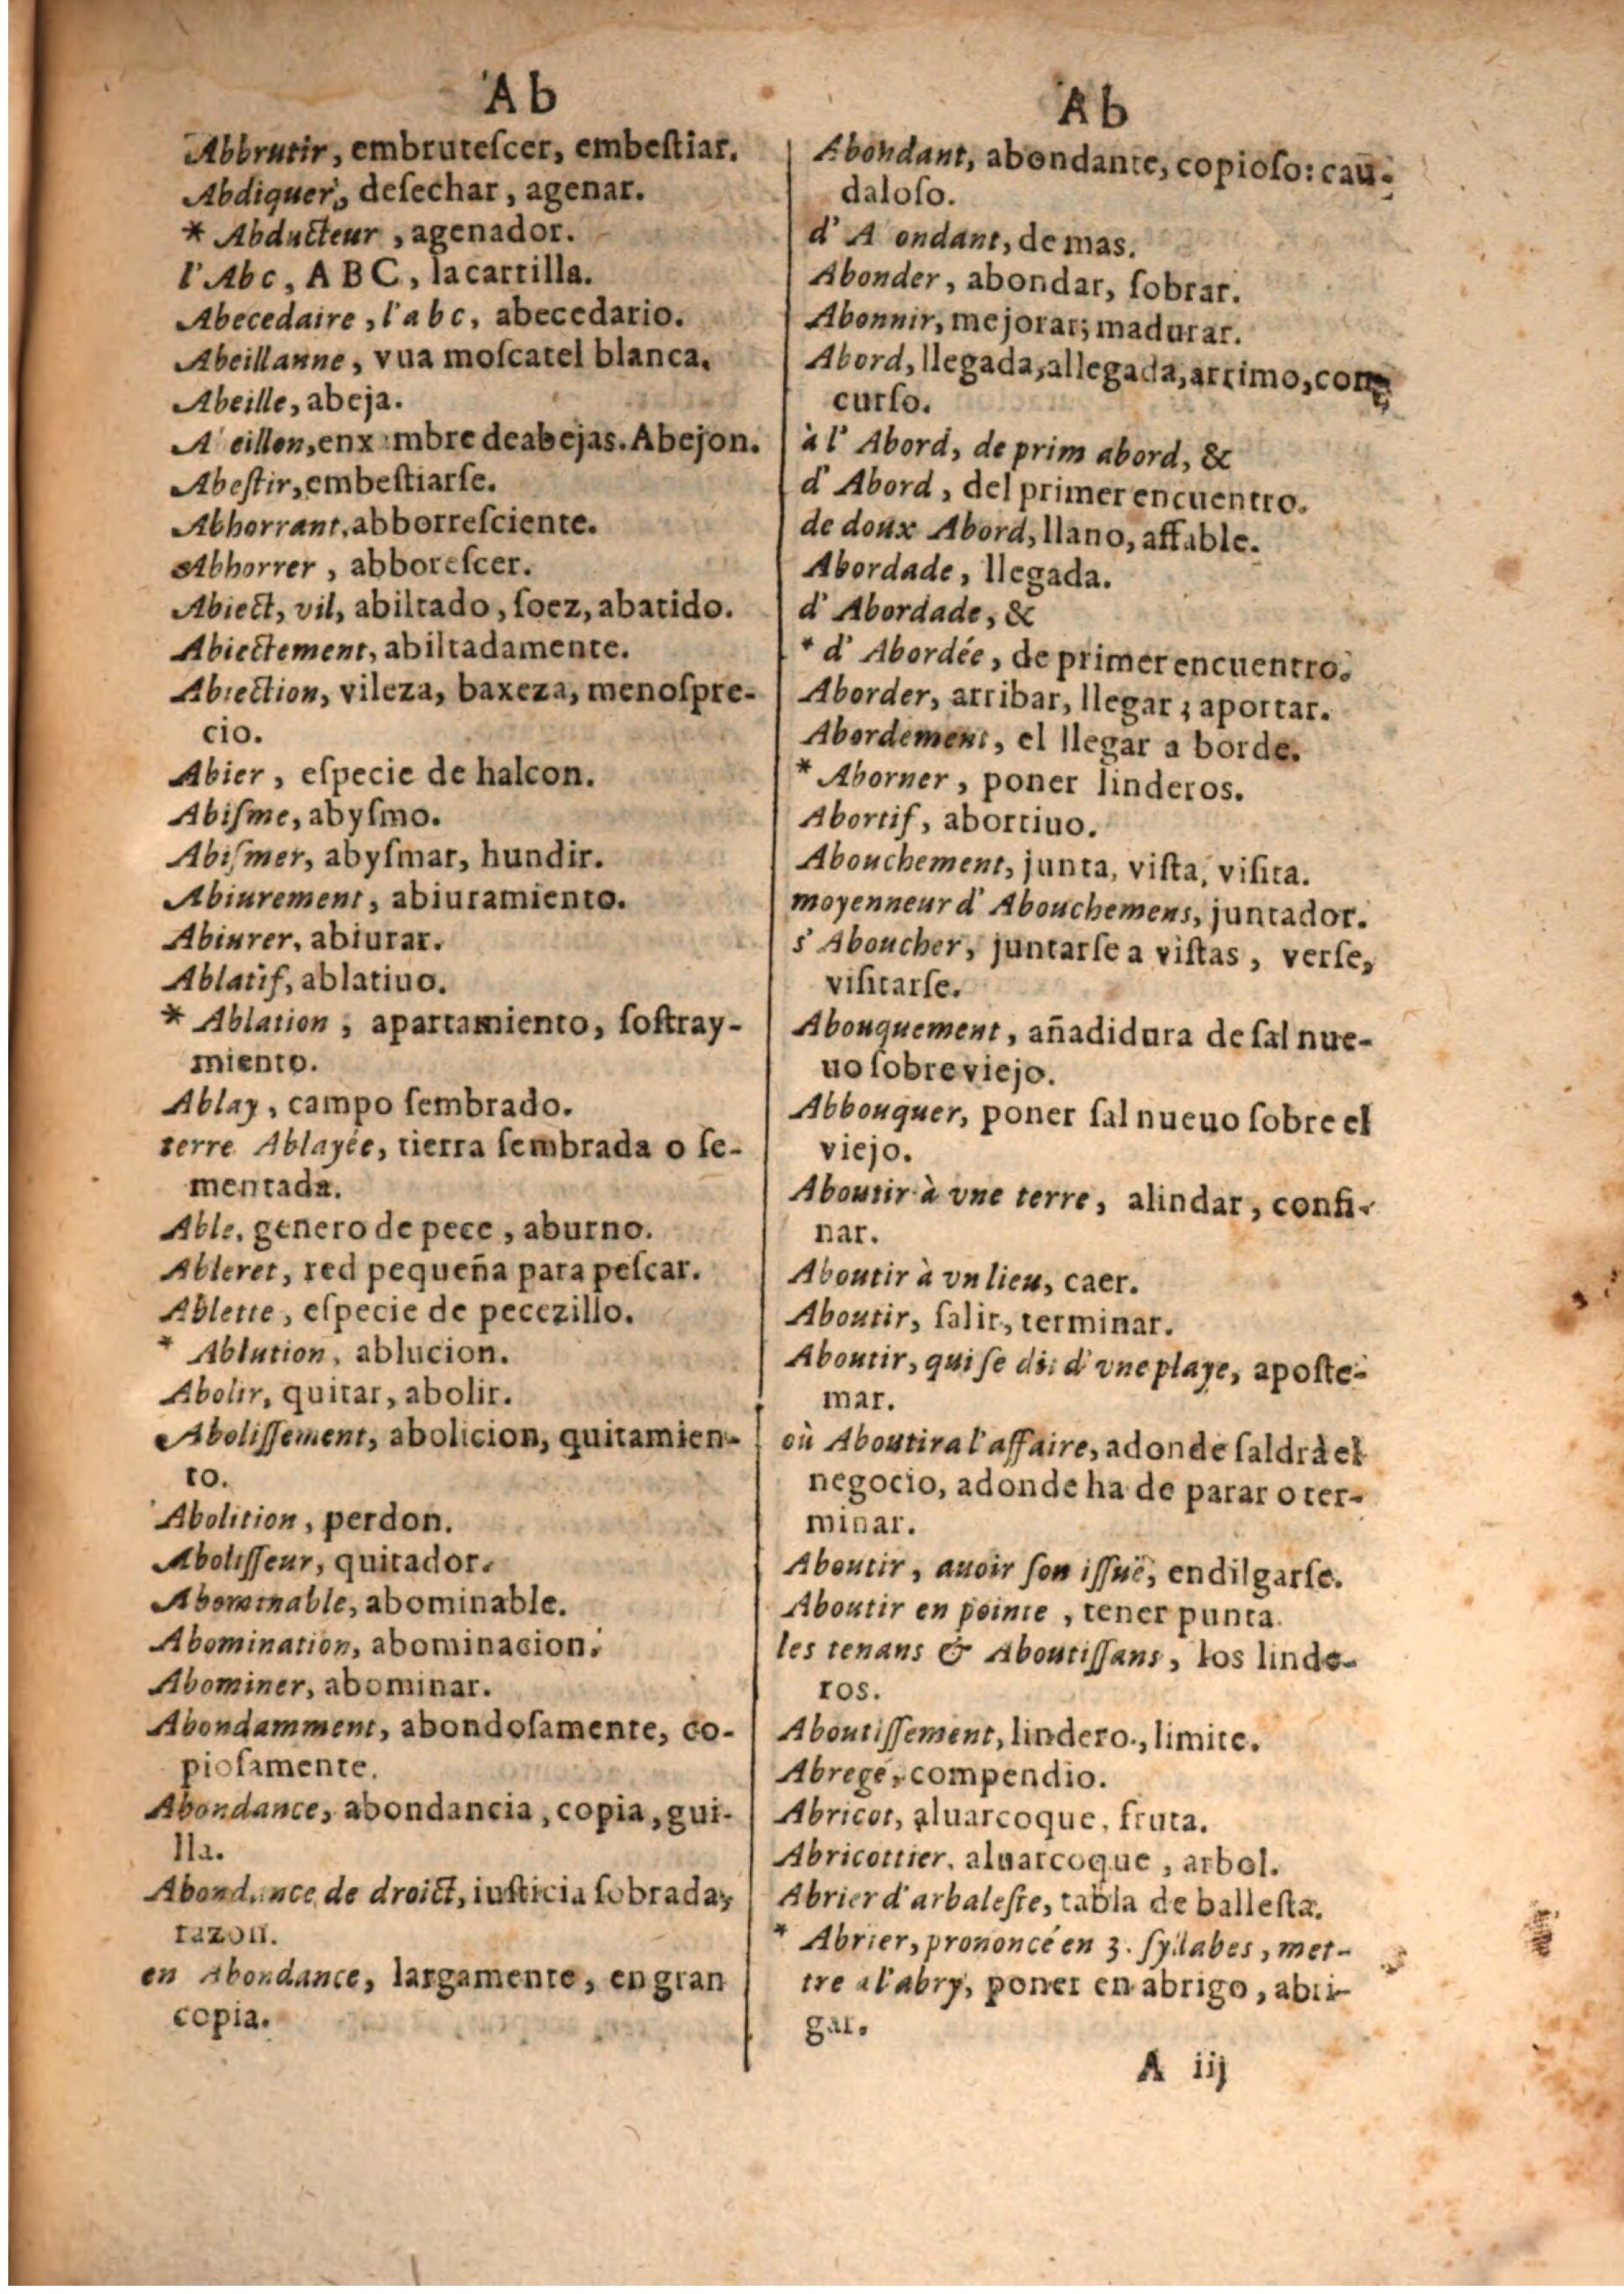 Ab
Abbrutir, embruteſcer, embeſtiar.
Abdiquer, deſechar, agenar.
* Abducteur, agenador.
l'Abc, ABC, la cartilla.
Abecedaire, l'abc, abecedario.
Abeillanne, vua moſcatel blanca.
Abeille, abeja.
A eillon, enx mbre de abejas. Abejon.
Abeſtir, embeſtiarſe.
Abhorrant, abborreſciente.
Abhorrer, abboreſcer.
Abiect, vil, abiltado, ſoez, abatido.
Abiectement, abiltadamente.
Abiection, vileza, baxeza, menoſpre-
cio.
Abier, eſpecie de halcon.
Abiſme, abyſmo.
Abiſmer, abyſmar, hundir.
Abiurement, abiuramiento.
Abiurer, abiurar.
Ablatif, ablatiuo.
* Ablation, apartamiento, ſoſtray-
miento.
Ablay, campo ſembrado.
terre Ablayée, tierra ſembrada o ſe-
mentada.
Able, genero de pece, aburno.
Ableret, red pequeña para peſcar.
Ablette, eſpecie de pecezillo.
* Ablution, ablucion.
Abolir, quitar, abolir.
Aboliſſement, abolicion, quitamien-
to.
Abolition, perdon.
Aboliſſeur, quitador.
Abominable, abominable.
Abomination, abominacion.
Abominer, abominar.
Abondamment, abondoſamente, co-
pioſamente.
Abondance, abondancia, copia, gui-
lla.
Abondance de droict, iuſticia ſobrada,
razon.
en Abondance, largamente, en gran
copia.
Ab
Abondant, abondante, copioſo: cau-
daloſo.
d' A ondant, de mas.
Abonder, abondar, ſobrar.
Abonnir, mejorar; madurar.
Abord, llegada, allegada, arrimo, con-
curſo.
à l' Abord, de prim abord, &
d' Abord, del primer encuentro.
de doux Abord, llano, affable.
Abordade, llegada.
d' Abordade, &
* d' Abordée, de primer encuentro.
Aborder, arribar, llegar; aportar.
Abordement, el llegar a borde.
* Aborner, poner linderos.
Abortif, abortiuo.
Abouchement, junta, viſta, viſita.
moyenneur d' Abouchemens, juntador.
s' Aboucher, juntarſe a viſtas, verſe,
viſitarſe.
Abouquement, añadidura de ſal nue-
uo ſobre viejo.
Abbouquer, poner ſal nueuo ſobre el
viejo.
Aboutir à vne terre, alindar, confi-
nar.
Aboutir à vn lieu, caer.
Aboutir, ſalir, terminar.
Aboutir, qui ſe dit d' vne playe, apoſte-
mar.
où Aboutira l'affaire, adonde ſaldrà el
negocio, adonde ha de parar o ter-
minar.
Aboutir, auoir ſon iſſuë, endilgarſe.
Aboutir en pointe, tener punta.
les tenans & Aboutiſſans, los linde-
ros.
Aboutiſſement, lindero, limite.
Abregé, compendio.
Abricot, aluarcoque, fruta.
Abricottier, aluarcoque, arbol.
Abrier d'arbaleſte, tabla de balleſta.
* Abrier, prononcé en 3. ſyllabes, met-
tre a l'abry, poner en abrigo, abri-
gar.
A iij